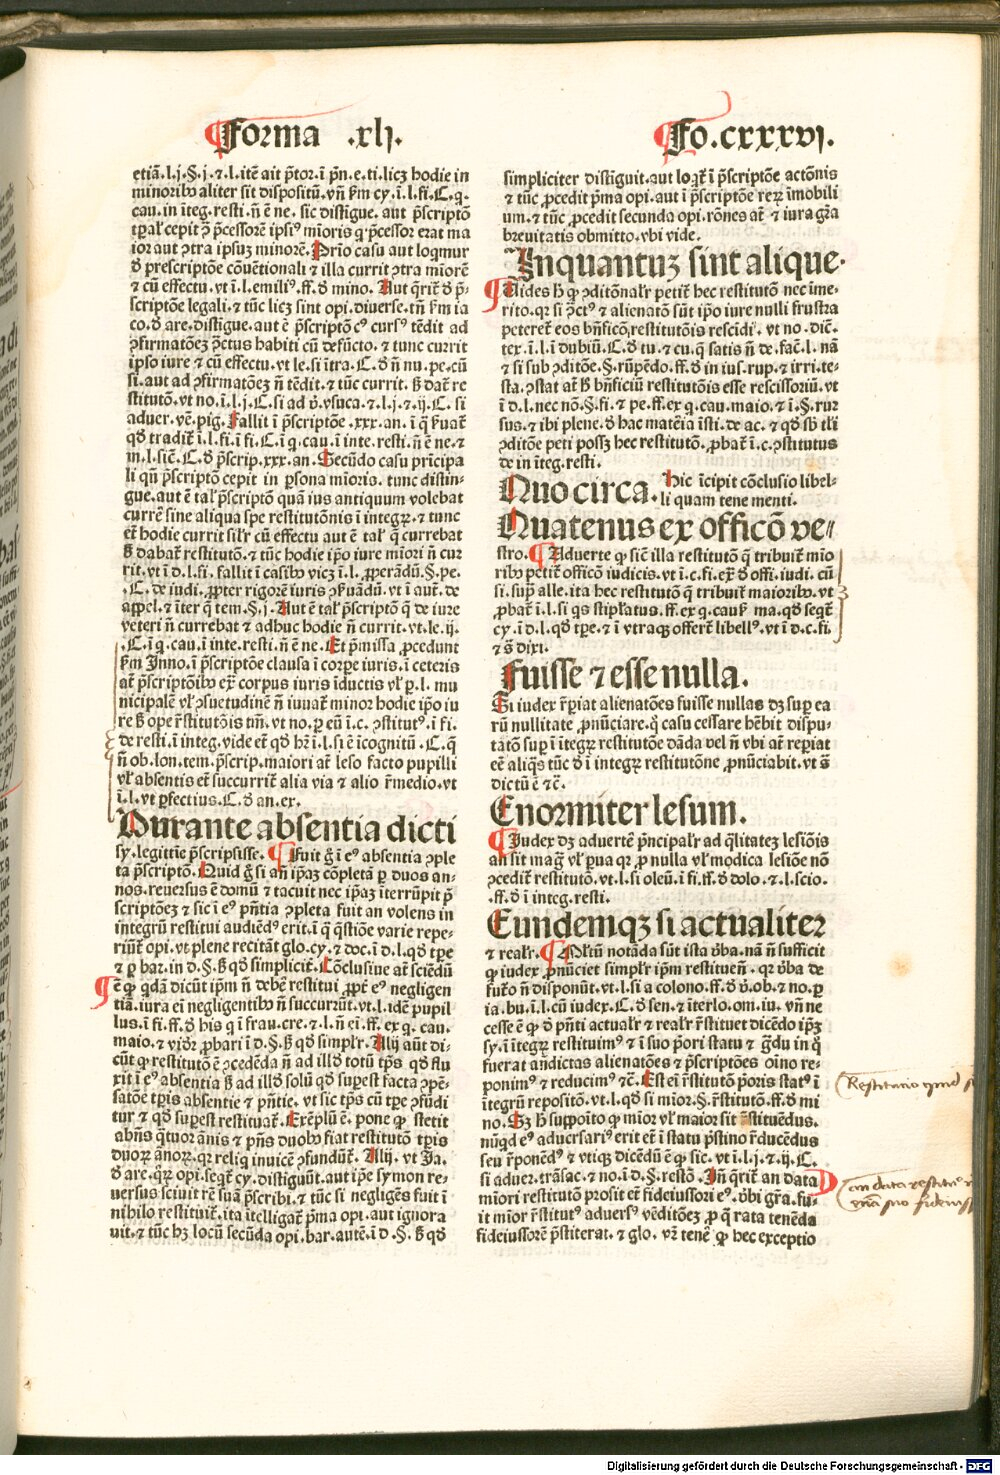 Forma .xlj.
Fo.cxxxvj.
etiā.l.j.§.j.⁊.l.itē ait p̄tor.ī p̄n.e.ti.licꝫ hodie in
minoribꝰ aliter sit dispositū.vn̄ km̄ cy.ī.l.fi.C.q.
cau.in īteg.resti.n̄ ē ne. sic distīgue. aut p̄scriptō
iorē aut ꝯtra ipsuꝫ minorē. Prio casu aut loqmur
ꝺ prescriptōe cōuētionali ⁊ illa currit ꝯtra miorē
⁊ cū effectu. vt ī.l.emiliꝰ.ff.ꝺ mino. Aut q̄rit̄ ꝺ p̄-
scriptōe legali.⁊ tūc licꝫ sint opi.diuerse.tn̄ km̄ ia
co.ꝺ are.distīgue.aut ē p̄scriptō cꝰ cursꝰ tēdit ad
ꝯfirmatōeꝫ p̄ctus habiti cū defūcto.⁊ tunc currit
ipso iure ⁊ cū effectu.vt le.si ītra.C.ꝺ n̄ nu.pe.cū
si.aut ad ꝯfirmatōeꝫ n̄ tēdit.⁊ tūc currit. ꝫ dat̄ re
stitutō.vt no.ī.l.j.C.si ad v̄.vsuca.⁊.l.j.⁊.ij.C.si
aduer.vē.pig. Fallit ī p̄scriptōe.xxx.an.ī q̄ ẜuat̄
qꝺ tradit̄ ī.l.fi.ī fi.C.ī q.cau.ī inte.resti.n̄ ē ne.⁊
in.l.siē.C.ꝺ p̄scrip.xxx.an. Secūdo casu prīcipa
li qn̄ p̄scriptō cepit in ꝑsona mioris. tunc distin-
gue.aut ē tal̄ p̄scriptō quā ius antiquum volebat
currē sine aliqua spe restitutōnis ī integꝝ.⁊ tunc
et̄ hodie currit sil̄r cū effectu aut ē tal̄ q̄ currebat
ꝫ dabat̄ restitutō.⁊ tūc hodie ip̄o iure miori n̄ cur
rit.vt ī ꝺ.l.fi. fallit ī casibꝰ vicꝫ ī.l.ꝓperādū.§.pe.
.C.de iudi.ꝓpter rigorē iuris ꝯẜuādū.vt ī aut̄.de
appel.⁊ īter q̄ tem.§.j. Aut ē tal̄ p̄scriptō q̄ de iure
veteri n̄ currebat ⁊ adhuc hodie n̄ currit.vt.le.ij.
.C.ī q.cau.ī inte.resti.n̄ ē ne. Et p̄missa ꝓcedunt
km̄ Inno.ī p̄scriptōe clausa ī corpe iuris.ī ceteris
at̄ p̄scriptōibꝰ ex̄ corpus iuris īductis vl̄ ꝑ.l. mu
nicipalē vl̄ ꝯsuetudinē n̄ iuuat̄ minor hodie ip̄o iu
re ꝫ ope r̄stitutōis tm̄. vt no.ꝑ eū ī.c.ꝯstitutꝰ.ī fi.
de resti.ī integ.vide et̄ qꝺ hr̄ ī.l.si ē īcognitū.C.q̄
n̄ ob.lon.tem.p̄scrip.maiori at̄ leso facto pupilli
vl̄ absentis et̄ succurrit̄ alia via ⁊ alio r̄medio.vt
ī.l.vt ꝑfectius.C.ꝺ an.ex.
Durante absentia dicti
sy.legittīe p̄scripsisse. ¶ Fuit ḡ ī eꝰ absentia ꝯple
ta p̄scriptō. Quid ḡ si an̄ ip̄aꝫ cōpletā ꝑ duos an-
nos.reuersus ē domū ⁊ tacuit nec ip̄aꝫ īterrūpit p̄
scriptōeꝫ ⁊ sic ī eꝰ pn̄tia ꝯpleta fuit an volens in
integrū restitui audiēdꝰ erit.ī q̄ q̄stiōe varie repe-
riūt̄ opi.vt plene recitāt glo.cy.⁊ doc.ī ꝺ.l.qꝺ tpe
⁊ ꝑ bar.in ꝺ.§.ꝫ qꝺ simplicit̄. Cōclusiue at̄ sciēdū
ē ꝙ qdā dicūt ip̄m n̄ debē restitui ꝓpt̄ eꝰ negligen
tiā.iura ei negligentibꝰ n̄ succurrūt.vt.l.idē pupil
lus.ī fi.ff.ꝺ his q̄ ī frau.cre.⁊.l.n̄ ei.ff.ex q.cau.
maio.⁊ vidr̄ ꝓbari ī ꝺ.§.ꝫ qꝺ simpl̄r. Alij aūt di-
cūt ꝙ restitutō ē ꝯcedēda n̄ ad illꝺ totū tp̄s qꝺ flu
xit ī eꝰ absentia ꝫ ad illꝺ solū qꝺ suꝑest facta ꝯpē-
satōe tp̄is absentie ⁊ pn̄tie. vt sic tp̄s cū tpe ꝯfūdi
tur ⁊ qꝺ suꝑest restituat̄. Exēplū ē. pone ꝙ stetit
abn̄s q̄tuor ānis ⁊ pn̄s duobꝰ fiat restitutō tp̄is
duoꝝ ānoꝝ.qꝛ reliq̄ inuicē ꝯfundūt̄. Alij. vt Ja.
ꝺ are.qꝝ opi.seqt̄ cy.distiguūt.aut ip̄e symon re-
uersus sciuit rē suā p̄scribi.⁊ tūc si negligēs fuit ī
nihilo restituit̄.ita ītelligat̄ p̄ma opi.aut ignora
uit.⁊ tūc hꝫ locū secūda opi.bar.autē.ī ꝺ.§.ꝫ qꝺ
simpliciter distīguit.aut loqt̄ ī p̄scriptōe actōnis
⁊ tūc ꝓcedit p̄ma opi.aut ī p̄scriptōe reꝝ īmobili
um.⁊ tūc ꝓcedit secunda opi.rōnes at̄ ⁊ iura gr̄a
breuitatis obmitto.vbi vide.
Inquantuꝫ sint alique.
rito.qꝛ si p̄ctꝰ ⁊ alienatō sūt ip̄o iure nulli frustra
peteret̄ eos bn̄ficō restitutōis rescidi.vt no.dic̄.
tex.ī.l.ī dubiū.C.ꝺ tu.⁊ cu.q̄ satis n̄ de.fac̄.l. nā
⁊ si sub ꝯditōe.§.rūpēdo.ff.ꝺ in ius.rup.⁊ irri.te-
sta.ꝯstat at̄ ꝫ bn̄ficiū restitutōis esse rescissoriū.vt
ī ꝺ.l.nec nō.§.fi.⁊ pe.ff.ex q.cau.maio.⁊ ī.§.rur
sus.⁊ ibi plene.ꝺ hac mateīa īsti.de ac.⁊ qꝺ sb̄ tl̄i
ꝯditōe peti possꝫ hec restitutō.ꝓbat̄ ī.c.ꝯstitutus
de in īteg.resti.
Quocirca. Hic īcipit cōclusio libel-
li quam tene menti.
Quatenus ex officō ve-
stro. ¶ Aduerte ꝙ siē illa restitutō q̄ tribuit̄ mīo
ribꝰ petit̄ officō iudicis.vt ī.c.fi.ex̄.ꝺ offi.iudi.cū
si.sup̄ alle.ita hec restitutō q̄ tribuit̄ maioribꝰ.vt
ꝓbat̄ ī.l.si qs stipl̄atus.ff.ex q.cauẜ ma.qꝺ seqt̄
cy.ī ꝺ.l.qꝺ tpe.⁊ ī vtraqꝫ offert̄ libellꝰ.vt ī ꝺ.c.fi.
⁊ s̄ dixi.
Fuisse ⁊ esse nulla.
Si iudex r̄piat alienatōes fuisse nullas dꝫ suꝑ ea
rū nullitate ꝓnūciare.q̄ casu cessare hēbit dispu-
tatō suꝑ ī īteḡꝝ restitutōe dāda vel n̄ vbi at̄ repīat
eē aliq̄s tūc ꝺ ī integꝝ restitutōne ꝓnūciabit.vt s̄
dictū ē ⁊c̄.
Enormiter lesum.
¶ Judex dꝫ aduertē p̄ncipal̄r ad q̄litateꝫ lesiōis
an sit maḡ vl̄ ꝑua qꝛ ꝓ nulla vl̄ modica lesiōe nō
ꝯcedit̄ restitutō.vt.l.si oleū.ī fi.ff.ꝺ dolo.⁊.l.scio.
.ff.ꝺ ī integ.resti.
Eundemqꝫ si actualiter
⁊ real̄r. ¶ Mltū notāda sūt ista v̄ba.nā n̄ sufficit
ꝙ iudex ꝓnūciet simpl̄r ip̄m restituen̄.qꝛ v̄ba de
futo n̄ disponūt.vt.l.si a colono.ff.ꝺ v̄.ob.⁊ no.ꝑ
ia.bu.ī.l.cū iudex.C.ꝺ sen.⁊ īterlo.om.iu.vn̄ ne
cesse ē ꝙ ꝺ pn̄ti actual̄r ⁊ real̄r r̄stituet dicēdo ip̄ꝫ
sy.ī īteꝝ restituimꝰ ⁊ ī suo p̄ori statu ⁊ gꝺu in q̄
fuerat an̄dictas alienatōes ⁊ p̄scriptōes oīno re-
ponimꝰ ⁊ reducimꝰ ⁊c̄. Est ei r̄stitutō p̄oris statꝰ ī
ītegrū repositō.vt.l.qꝺ si mior.§.r̄stitutō.ff.ꝺ mi
no. Sꝫ ꝫ suppoīto ꝙ mior vl̄ maior sit r̄stituēdus.
nūqd eꝰ aduersariꝰ erit et̄ ī statu p̄stino r̄ducēdus
seu r̄ponēdꝰ ⁊ vtiqꝫ dicēdū ē ꝙ sic.vt ī.l.j.⁊.ij.C.
si aduer.trāsac.⁊ no.ī ꝺ.§.restō. In q̄rit̄ an data
miori restitutō prosit et̄ fideiussori eꝰ.v̄bi gr̄a.fu-
it mior r̄stitutꝰ aduersꝰ vēditōeꝫ ꝓ q̄ rata tenēda
fideiussorē p̄stiterat.⁊ glo.vr̄ tenē ꝙ hec exceptio
Restitutio
an data restitutio